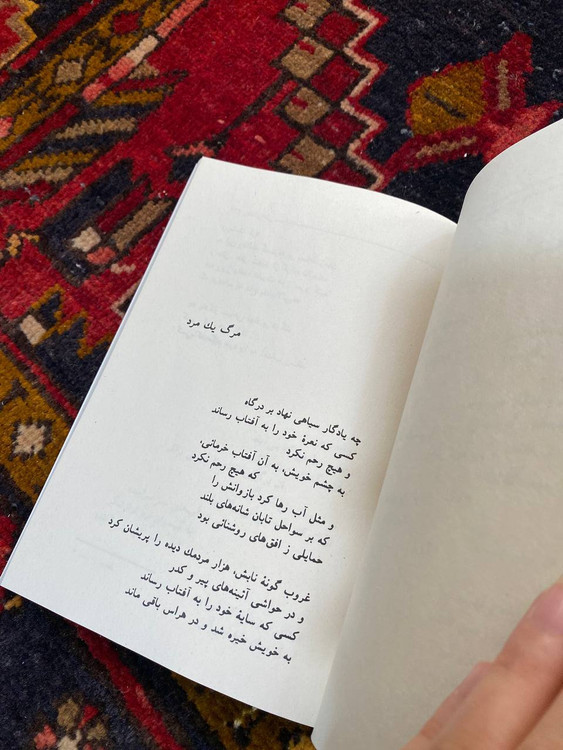 مرگ یك مرد
چه یادگار سیاهی نهاد بر درگاه
کسی که نعرهٔ خود را به آفتاب رساند
و هیچ رحم نکرد
به چشم خویش، به آن آفتاب خرمائی،
که هیچ رحم نکرد
و مثل آب رها کرد بازوانش را
که بر سواحل تابان شانه‌های بلند
حمایلی ز افق‌های روشنائی بود
غروب گونهٔ تابش، هزار مردمك دیده را پریشان کرد
و در حواشی آئینه‌های پیر و کدر
کسی که سایهٔ خود را به آفتاب رساند
به خویش خیره شد و در هراس باقی ماند